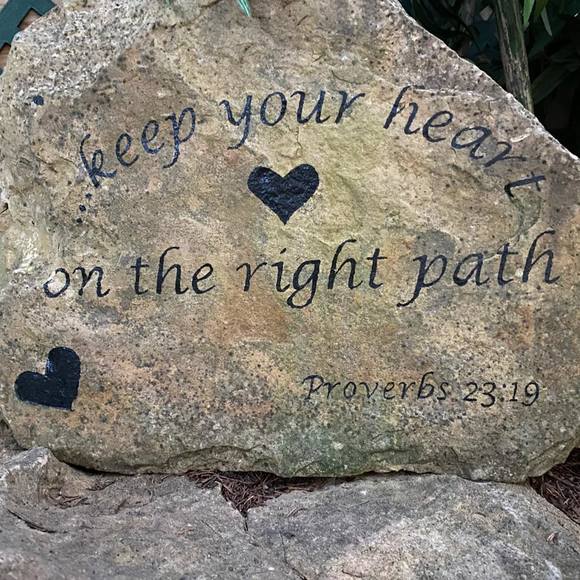 keep your heart
on the right path
Proverbs 23:19